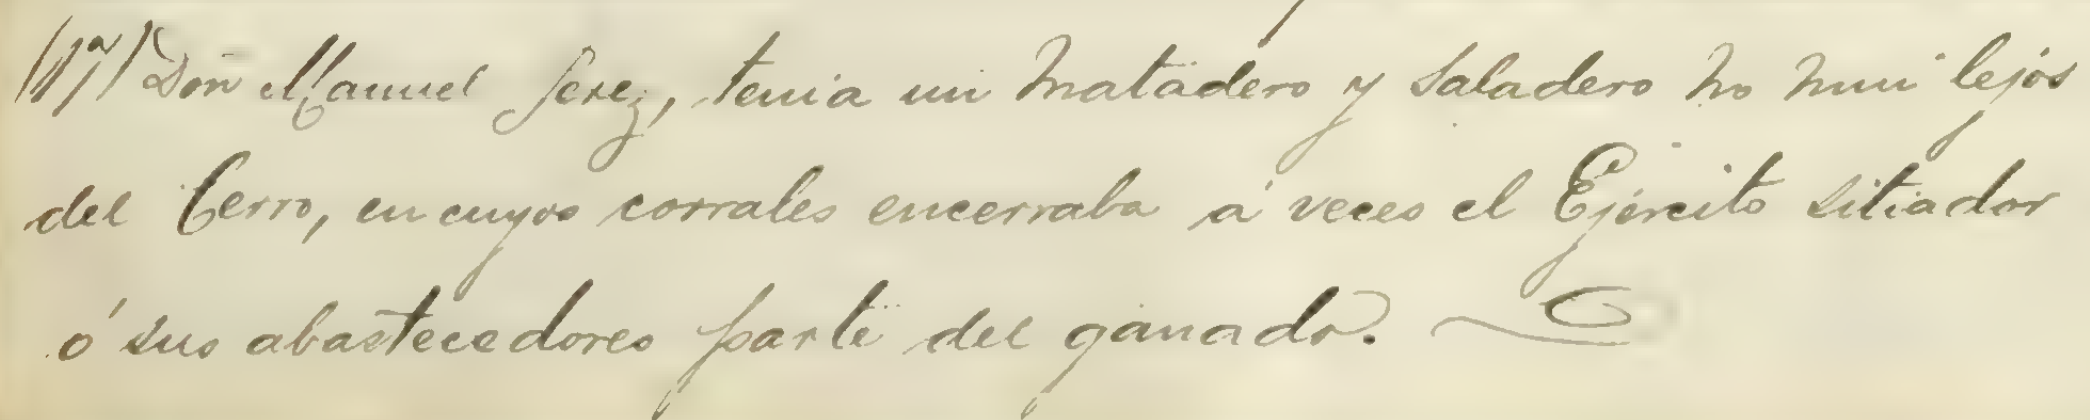 (1ª) Don Manuel Serez, tenia un matadero y saladero no mui lejos
del Cerro, en cuyos corrales encerraba á veces el Ejército sitiador
ó sus abastecedores parte del ganado.